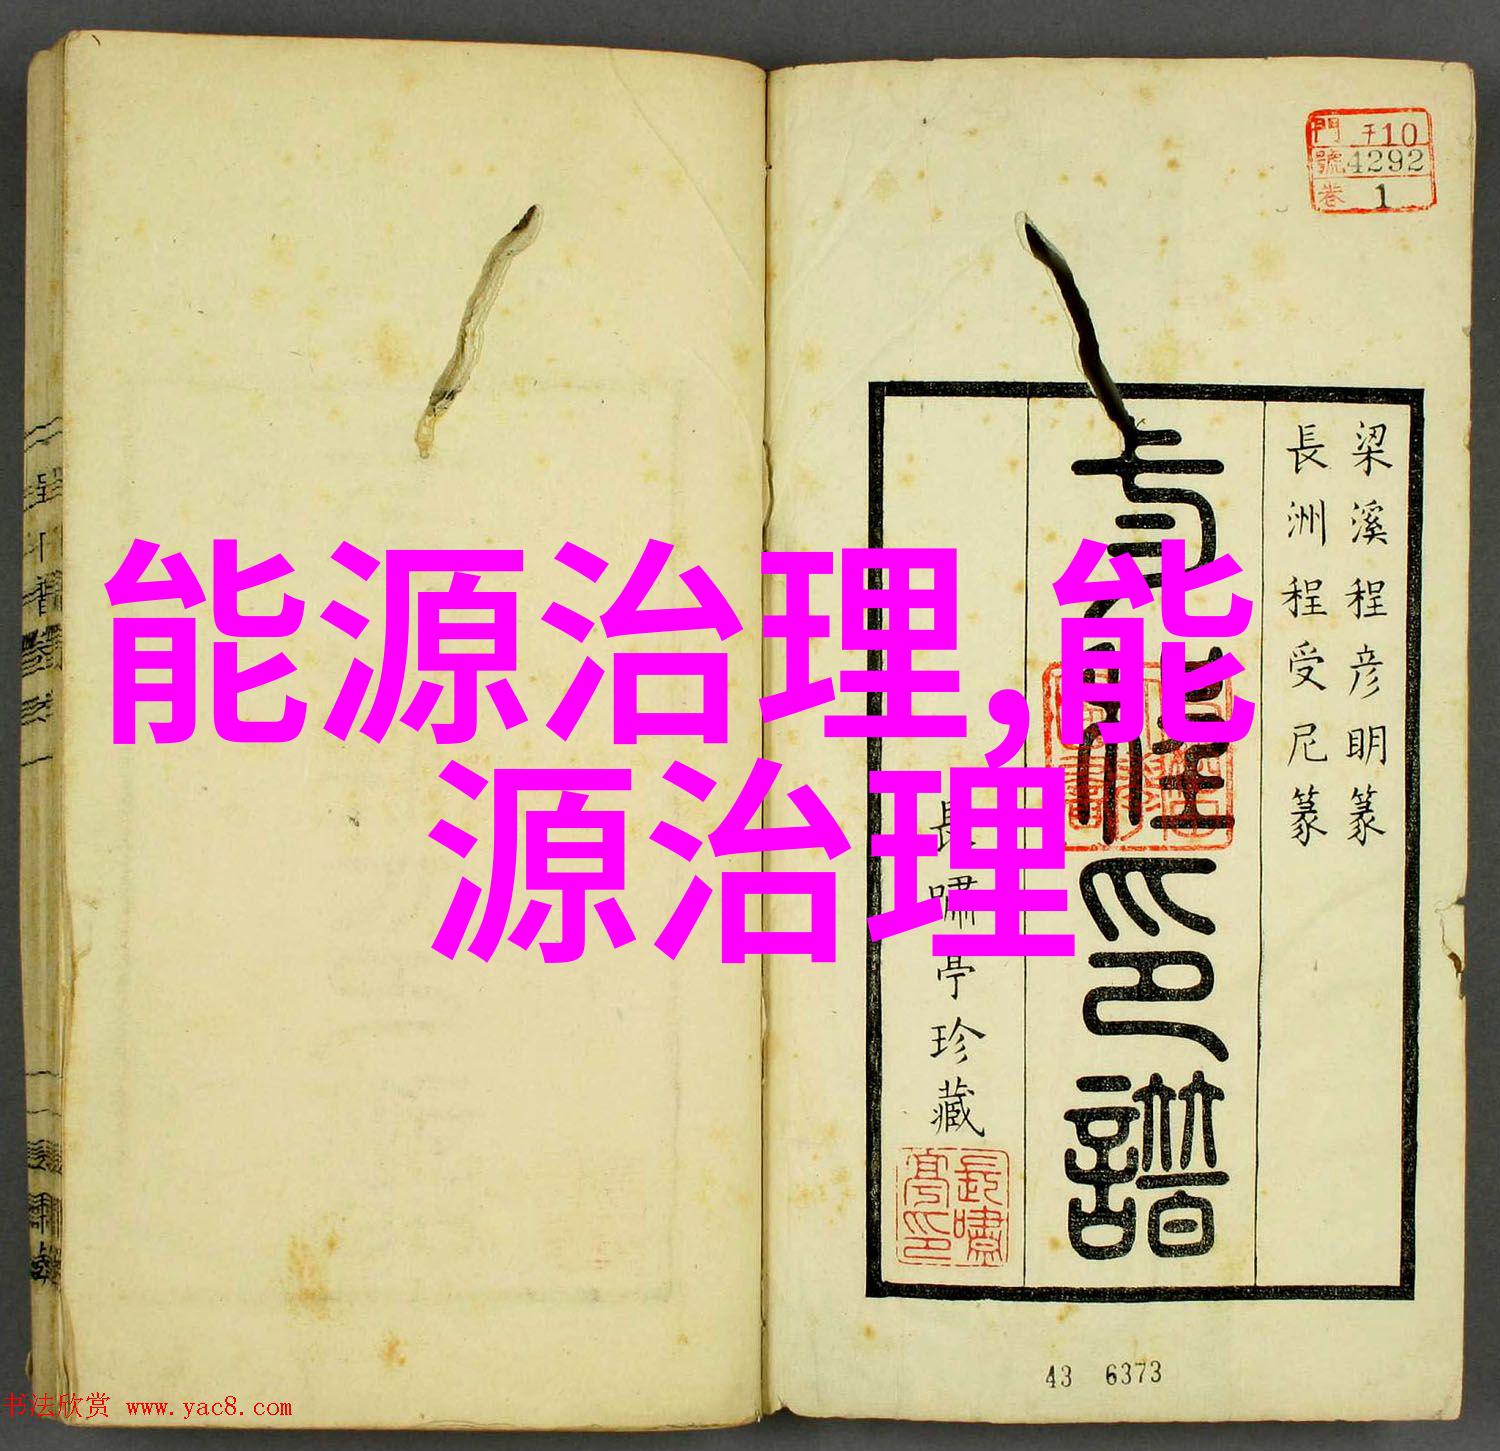 能源治理,能
源治理
門 子10
號 4292
卷 1
梁溪程彦明篆
長洲程受尼篆
印譜
長嘯亭珍藏
長嘯
亭印
43 6373
书法欣赏 www.yac8.com